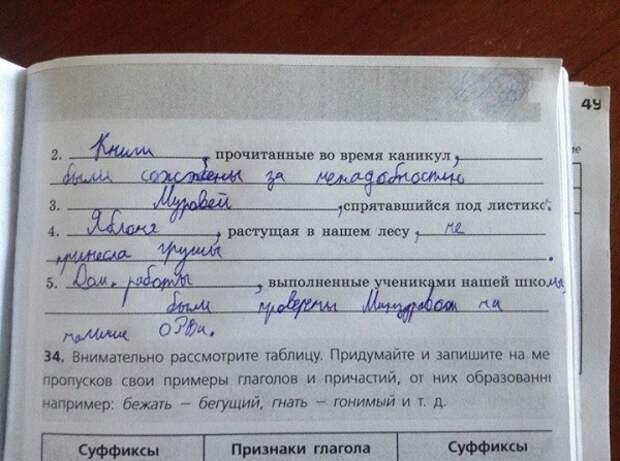 49
2. Книги, прочитанные во время каникул,
были сожжены за ненадобностью
3. Муравей, спрятавшийся под листикс
4. Яблоня, растущая в нашем лесу, не
принесла груши.
5. Дом. работы, выполненные учениками нашей школы,
были проверены Минздравом на
наличие ОРВи.
34. Внимательно рассмотрите таблицу. Придумайте и запишите на ме
пропусков свои примеры глаголов и причастий, от них образованн
например: бежать – бегущий, гнать – гонимый и т. д.
Суффиксы Признаки глагола Суффиксы